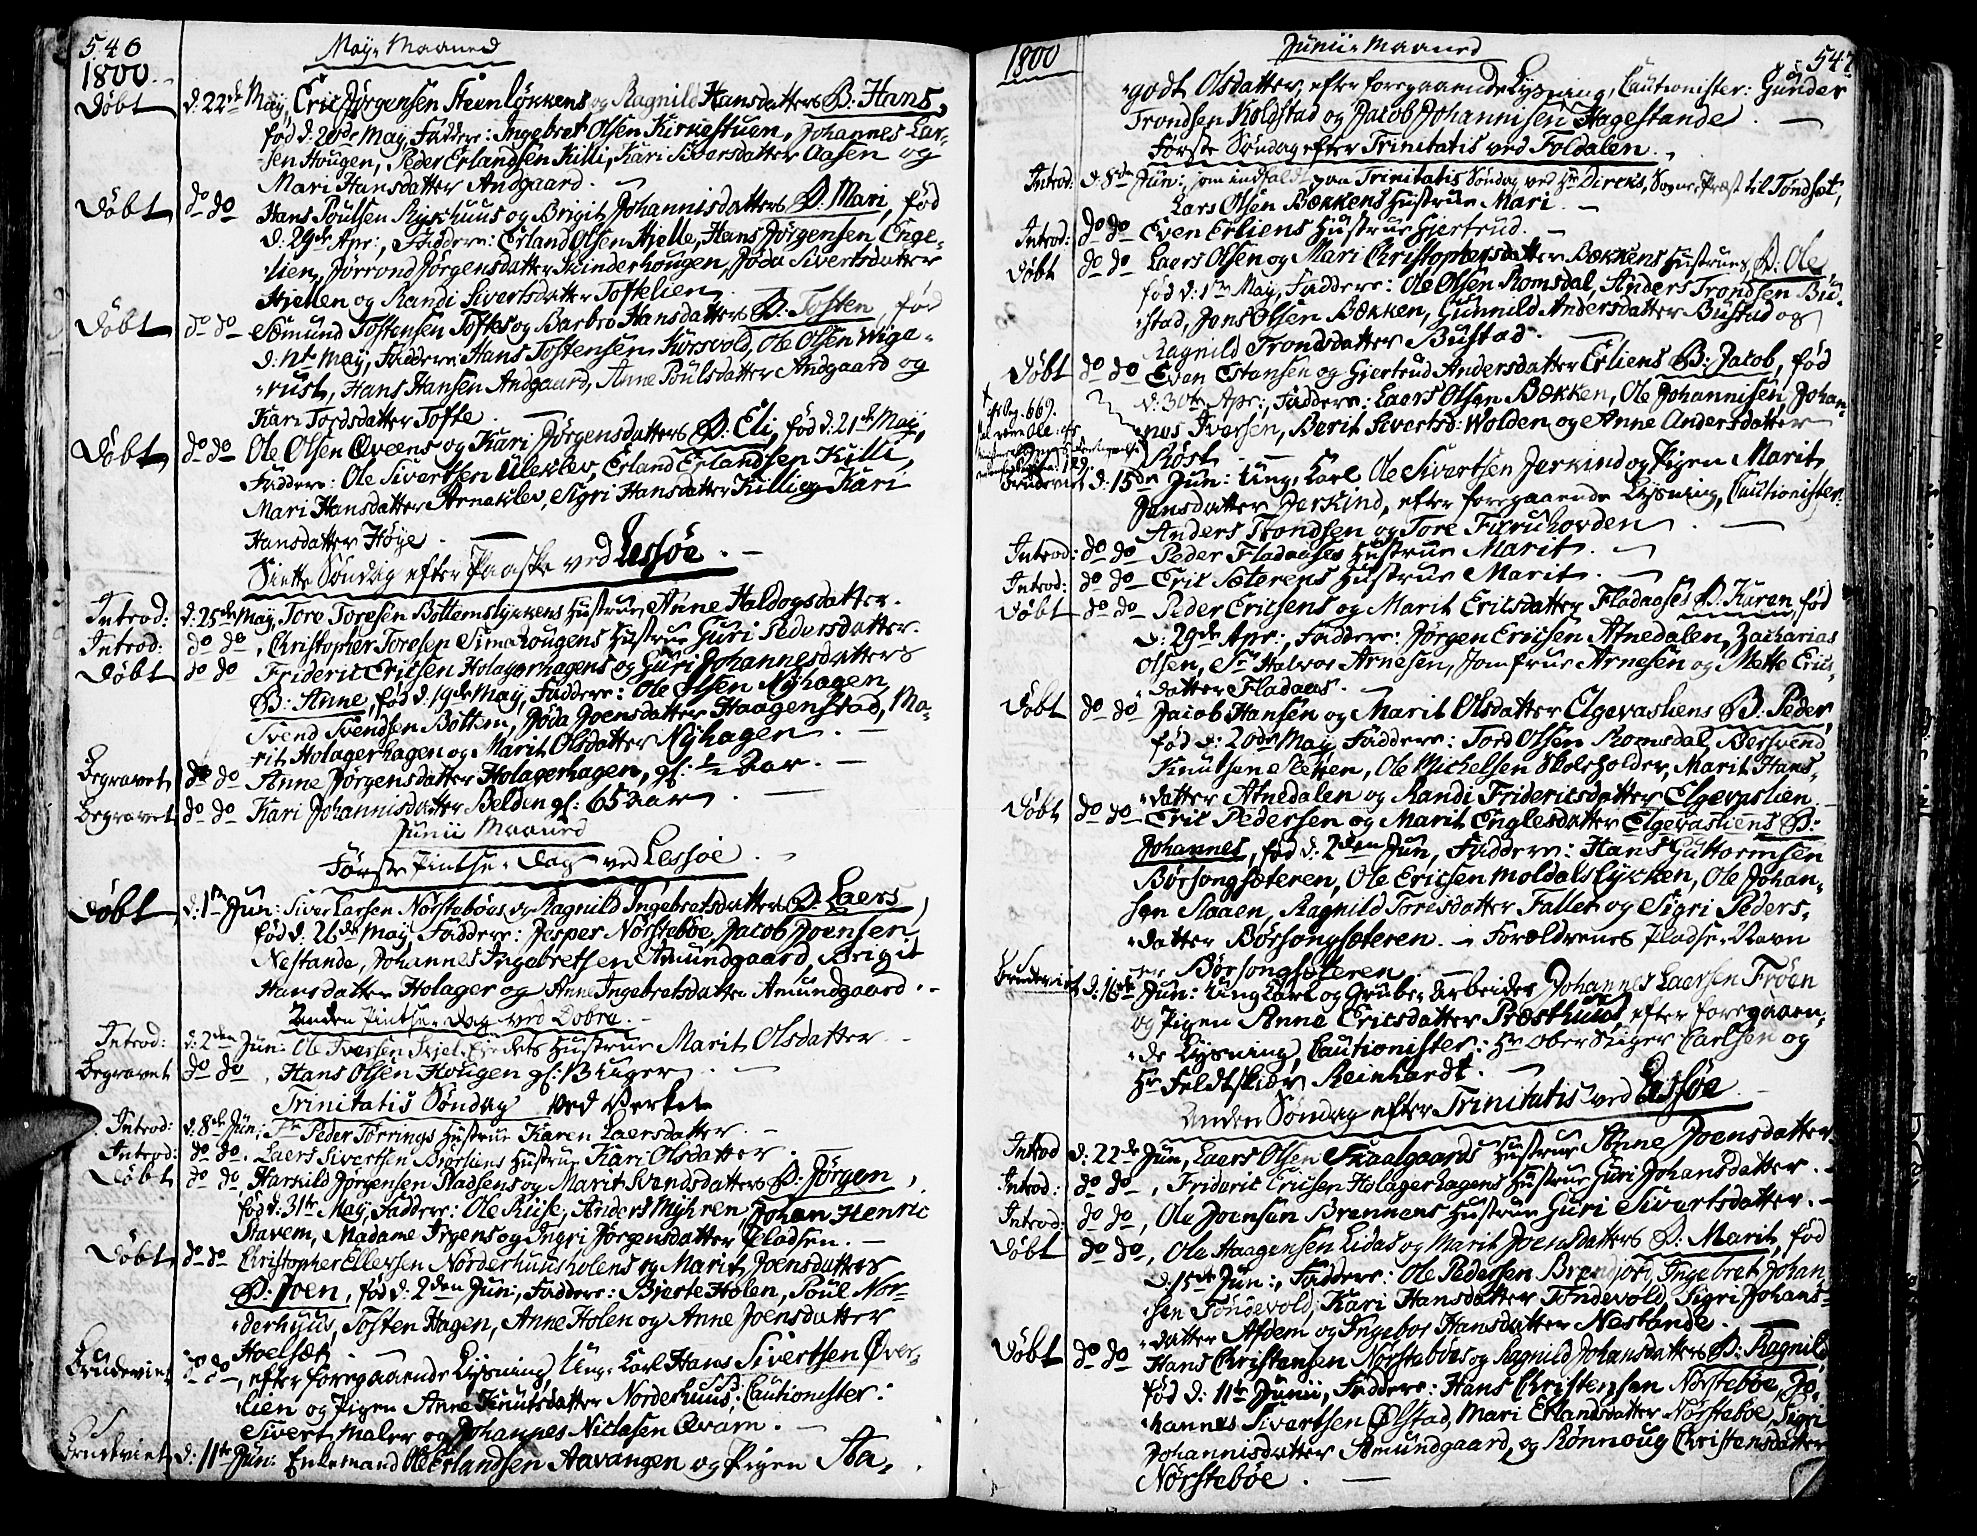 546
1800.
May Maaned
Döbt d: 22de May, Eric Jørgensen Steenløkkens og Ragnild Hansdatters B: Hans,
fød d: 20de May, Faddere: Ingebret Olsen Kirkestuen, Johannes Lar-
sen Hougen, Peder Erlandsen Killi, Kari Siversdatter Aasen og
Mari Hansdatter Andgaard.
Döbt do do Hans Poulsen Ryschuus og Brigit Johannisdatters B: Mari, fød
d: 29de Apr:, Faddere: Erland Olsen Hjelle, Hans Jørgensen Enge-
lien, Jørrond Jørgensdatter Skinderhougen, Jøda Sivertsdatter
Hjellen og Randi Sivertsdatter Toftelien.
Döbt do do Sømund Tostensen Toftes og Barbro Hansdatters B: Tosten, fød
d: May, Faddere Hans Tostensen Korsvold, Ole Olsen Wige-
rust, Hans Hansen Andgaard, Anne Poulsdatter Andgaard og
Kari Tordsdatter Tofte.
Döbt do do Ole Olsen Qveens og Kari Jørgensdatters B: Eli, fød d: 21de May,
Faddere: Ole Sivertsen Ulekløv, Erland Erlandsen Killi,
Mari Hansdatter Arnekløv, Sigri Hansdatter Killi og Kari
Hansdatter Høye.
Siette Søndag efter Paaske ved Lessøe.
Introd: d: 25de May, Tore Toresen Bottemslykkens Hustrue Anne Haldogsdatter.
Introd: do do, Christopher Toresen Hougens Hustrue Guri Pedersdatter.
Döbt do do Frideric Ericsen Holagerhagens og Guri Johannesdatters
B: Anne, fød d: 19de May, Faddere: Ole Olsen Nyhagen,
Svend Svendsen Bottem, Jøda Joensdatter Haagenstad, Ma-
rit Holagerhagen og Marit Olsdatter Nyhagen.
Begravet do do Anne Jørgensdatter Holagerhagen, gl: 1/2 Aar.
Begravet do do Kari Johannisdatter Belden gl: 65 Aar.
Junii Maaned
Første Pintse-Dag ved Lessøe.
Döbt d: 1ste Jun: Siver Larsen Nørstebøes og Ragnild Ingebretsdatters B: Laers
fød d: 26de May, Faddere: Jesper Nørstebøe, Jacob Joensen
Nestande, Johannes Ingebretsen Amundgaard, Brigit
Hansdatter Holager og Anne Ingebretsdatter Amundgaard.
Anden Pintse-Dag ved Dovre.
Introd: d: 2den Jun: Ole Iversen Hustrue Marit Olsdatter
Begravet do do, Hans Olsen Hougen gl: Uger.
Trinitatis Søndag ved Verket
Introd: d: 8de Jun: Hr Peder Tørrings Hustrue Karen Laersdatter.
Introd: do do. Laers Sivertsen Hustrue Kari Olsdatter.
Döbt do do Harkild Jørgensen Pladsens og Marit Svendsdatters B: Jørgen,
fød d: 31te May, Faddere: Ole Riise, Anders Myhren, Johan Henric
Stavem, Madame Irgens og Ingri Jørgensdatter Pladsen.
Döbt do do Christopher Ellevsen Nørderhuusholens og Marit Joensdatters
B: Joen, fød d: 2den Jun:, Faddere: Bjerte Holen, Poul Nor-
derhuus, Tosten Hagen, Anne Holen og Anne Joensdatter
Hoelsæt.
Brudeviet do do, efter foregaaende Lysning, Ung-Karl Hans Sivertsen Øver-
lien og Pigen Anne Knutsdatter Norderhuus; Cautionister:
Sivert Maler og Johannes Niclasen Qvam.
Brudeviet d: 11te Jun: Enkemand Ole Erlandsen Aavangen og Pigen Aa-
1800
Junii Maaned
547
godt Olsdatter, efter foregaaende Lysning, Cautionister: Gunder
Trondsen Koldstad og Jacob Johannisen Hagestande.
Første Søndag efter Trinitatis ved Foldalen.
Introd: d: 8de Jun:, som indfaldt paa Trinitatis Søndag ved Hr Dircks, Sogne-Præst til Tøndset,
Lars Olsen Bækkens Hustrue Mari.
Introd: do do Even Erliens Hustrue Giertrud.
Döbt do do Laers Olsen og Mari Christophersdatter Bækkens Hustrues B: Ole,
fød d: 1ste May, Faddere: Ole Olsen Romsdal, Anders Trondsen Bu-
stad, Jens Olsen Bækken, Gunnild Andersdatter Bustad og
Ragnild Trondsdatter Bustad.
Döbt do do Even Estensen og Giertrud Andersdatter Erliens B: Jacob, fød
d: 30te Apr:, Faddere: Laers Olsen Bækken, Ole Johannisen, Johan-
nes Iversen, Berit Sivertsd: Wolden og Anne Andersdatter
Röst.
Pag. 669.
Brudeviet d: 15de Jun: Ung-Karl Ole Sivertsen Jerkind og Pigen Marit
Jensdatter Jerkind, efter foregaaende Lysning, Cautionister:
Anders Trondsen og Tore Furuhovden.
Introd: do do Peder Fladaases Hustrue Marit.
Introd: do do Eric Sæterens Hustrue Marit.
Döbt do do Peder Ericsens og Marit Ericsdatter Fladaases B: Karen, fød
d: 29de Apr:, Faddere: Jørgen Ericsen Atnedalen, Zacharias
Olsen, Sr Halvor Arnesen, Jomfrue Arnesen og Mette Erics-
datter Fladaas.
Döbt do do Jacob Hansen og Marit Olsdatter Elgevasliens B: Peder,
fød d: 20de May, Faddere: Tord Olsen Romsdal, Bersvend
Knutsen Sletten, Ole Mickelsen Skoleholder, Marit Hans-
datter Atnedalen og Randi Fridericsdatter Elgevaslien.
Döbt do do Eric Pedersen og Marit Englesdatter Elgevasliens B:
Johannes, fød d: 2den Jun, Faddere: Hans Guttormsen
Børsongsæteren, Ole Ericsen Moldalslykken, Ole Johan-
sen Slaaen, Ragnild Torisdatter Fallet og Sigri Peders-
datter Børsongsæteren. Forældrenes Pladse-Navn
er Børsongsæteren.
Brudeviet d: 16de Jun: Ung Karl og Grube-Arbeider Johannes Laersen Frøen
og Pigen Anne Ericsdatter Præsthuus efter foregaaen-
de Lysning, Cautionister: Hr Ober Stiger Carlsen og
Hr Feldtskiær Reinhardt.
Anden Søndag efter Trinitatis ved Lessøe
Introd d: 22de Jun, Laers Olsen Skaalgaards Hustrue Anne Joensdatter.
Introd: do do, Frideric Ericsen Holagerhagens Hustrue Guri Johansdatter.
Introd: do do, Ole Joensen Brennens Hustrue Guri Sivertsdatter.
Döbt do do, Ole Haagensen Lidas og Marit Joensdatters B: Marit, fød
d: 15de Jun:, Faddere: Ole Pedersen Brenjord, Ingebret Johan-
sen Tøndevold, Kari Hansdatter Tøndevold, Sigri Johans-
datter Afdem og Ingebor Hansdatter Nestande.
Döbt do do Hans Christensen Nørstebøes og Ragnild Johansdatters B: Ragnild,
fød d: 11te Junii, Faddere: Hans Christensen Nørstebøe, Jo-
hannes Sivertsen Ølstad, Mari Erlandsdatter Nørstebøe, Sigri
Johannisdatter Amundgaard, og Rønnoug Christensdatter
Nørstebøe.